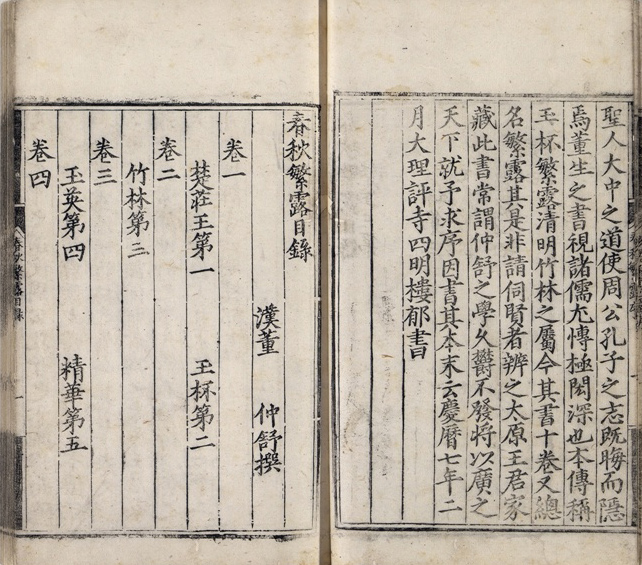 聖人大中之道使周公孔子之志既晦而隱
焉董生之書視諸儒尤博極閎深也本傳稱
玉杯繁露清明竹林之屬今其書十卷又總
名繁露其是非請俟賢者辨之太原王君家
藏此書常謂仲舒之學久鬱不發將以廣之
天下就予求序因書其本末云慶曆七年二
月大理評寺四明樓郁書
春秋繁露目錄
漢董 仲舒撰
卷一
楚莊王第一 玉杯第二
卷二
竹林第三
卷三
玉英第四 精華第五
卷四
春秋繁露目錄